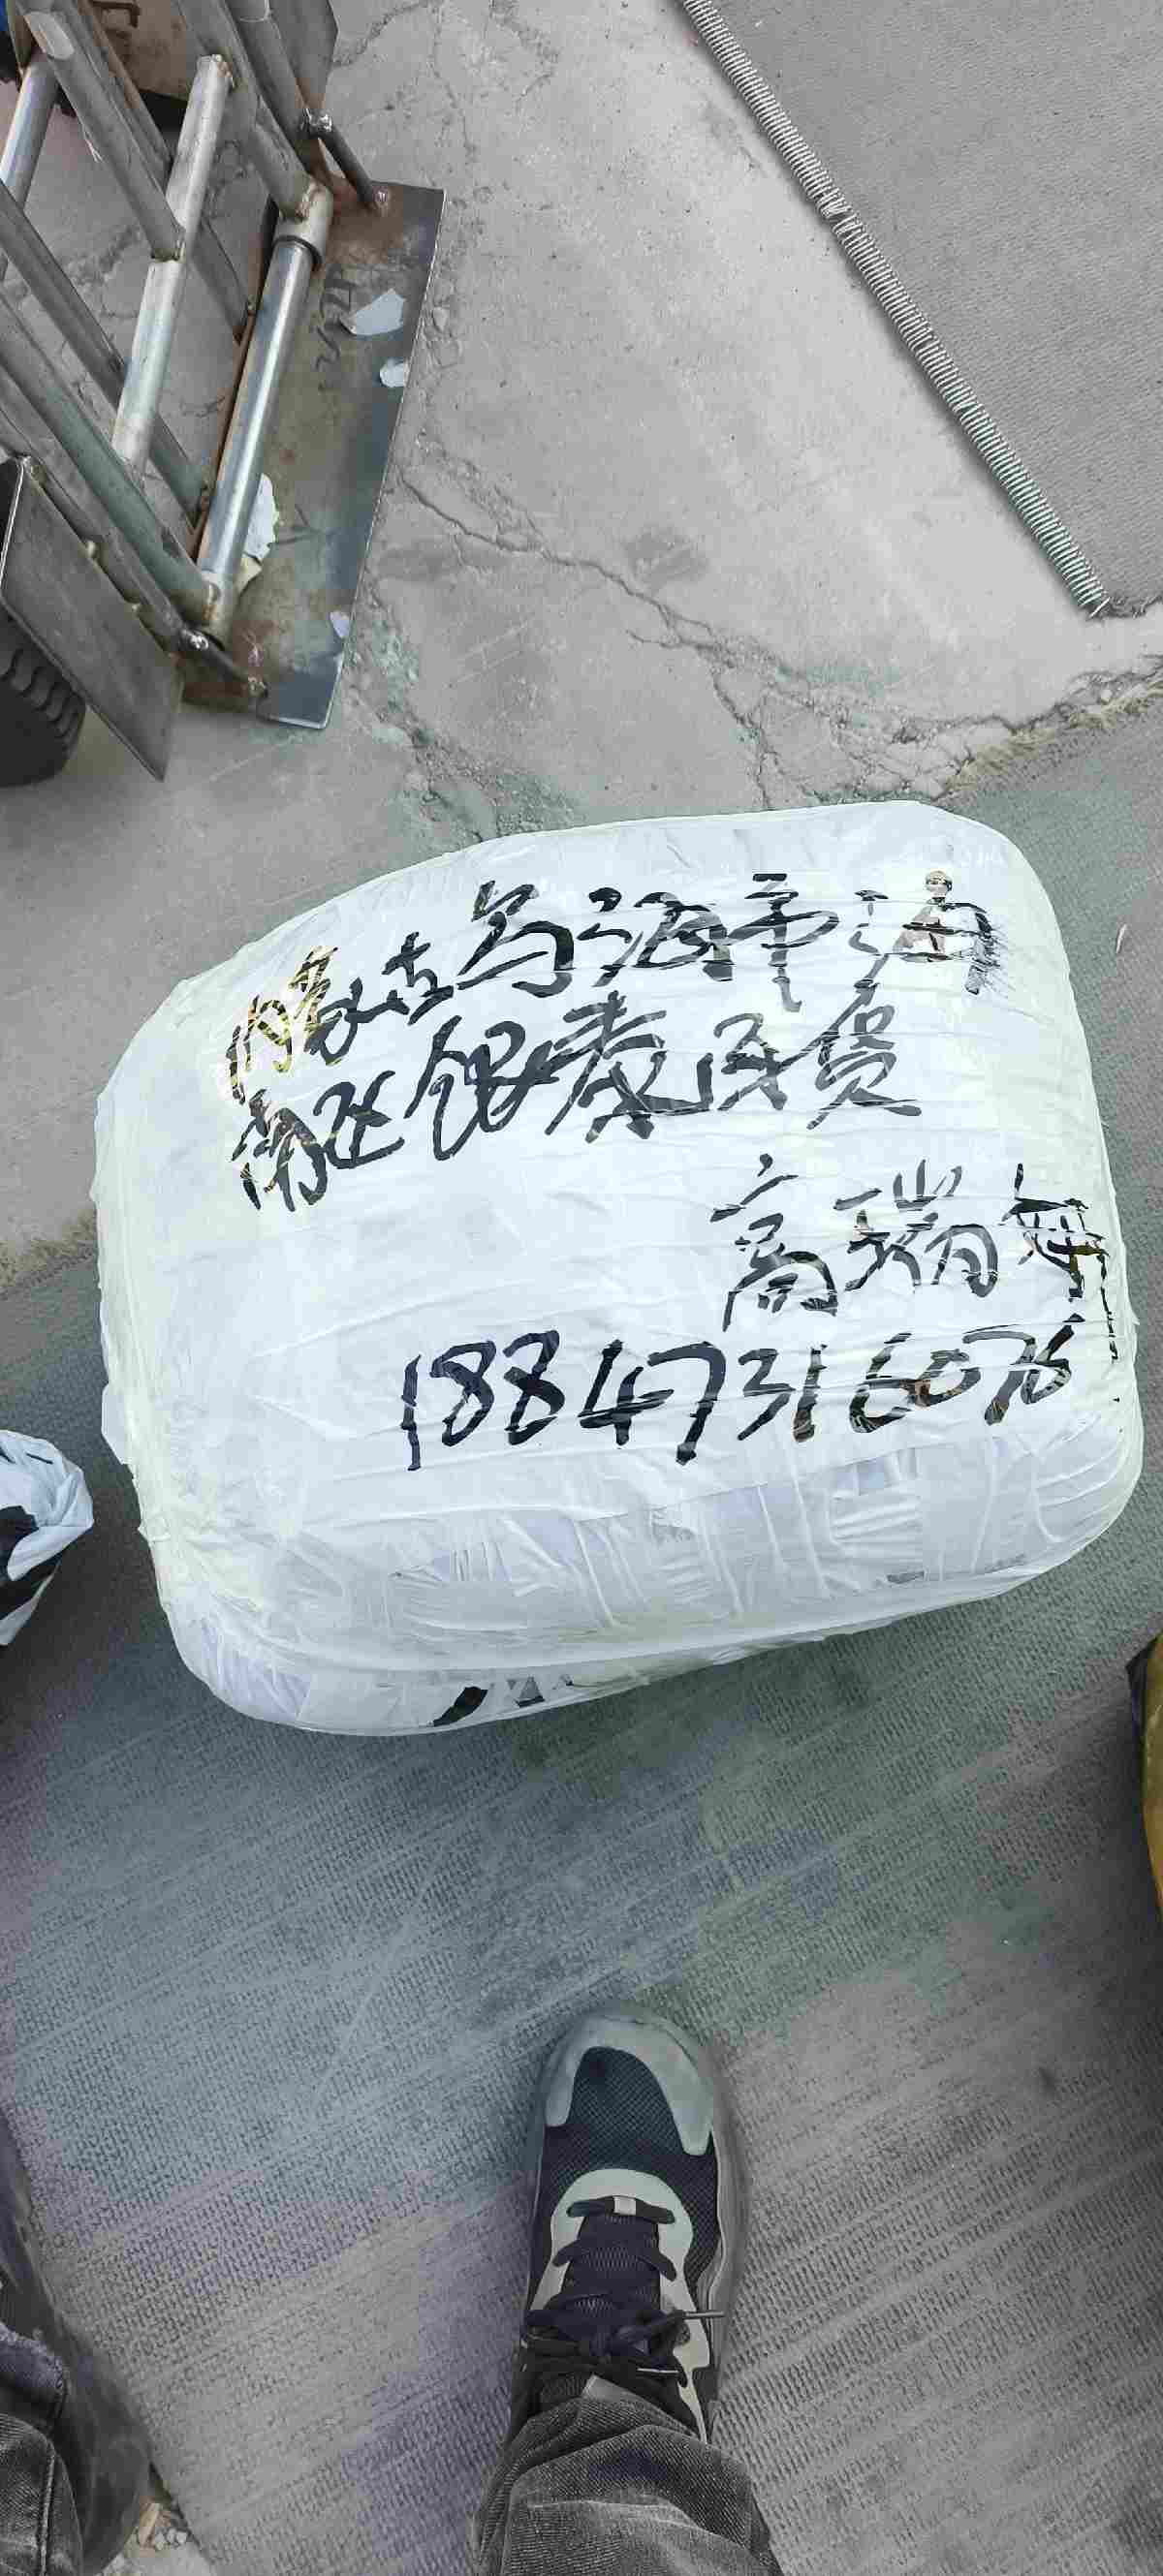 内蒙古乌海市海
南区银泰百货
高瑞
18847316076